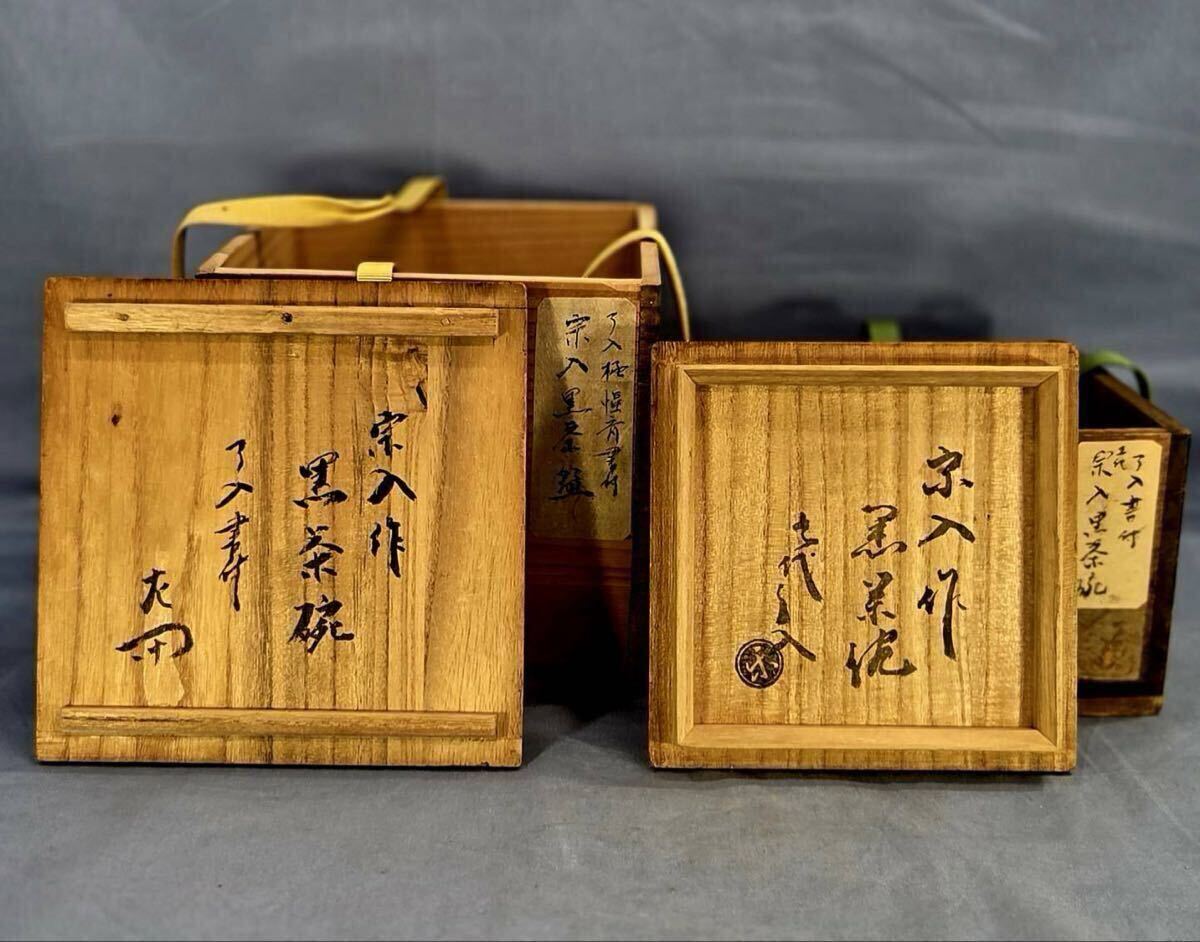 宗入作
黒茶碗
了入書付
左
宗入
黒茶碗
了入極
書付
宗入作
黒茶碗
九代了入
了入書付
宗入黒茶碗